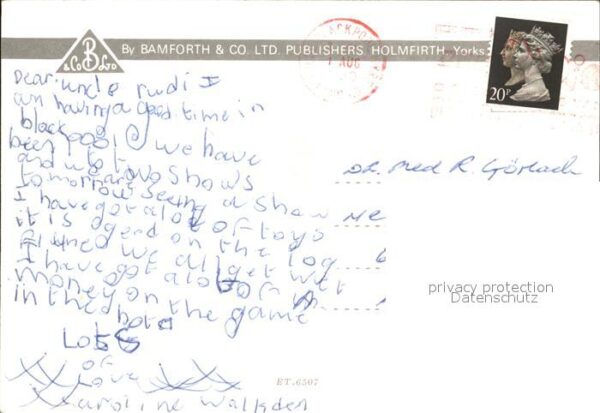 B
& Co Ltd
By BAMFORTH & CO. LTD. PUBLISHERS HOLMFIRTH, Yorks
1 AUG
20P
Dear uncle rudi I
am having a good time in
blackpool we have
been
and u to two shows
tomorrare seeing a show
I have got a lot of toys
it is a gerd
on the log
flumed we all get wet
I have got a lot of
money on the game
in the hotel
Lots
of
Love
aroline walkden
Dr. med R. Görlach
privacy protection
Datenschutz
ET.6507